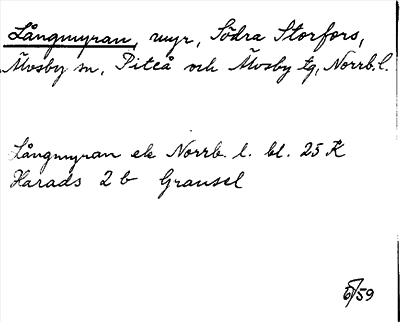 Långmyran, myr, Södra Storfors,
Älvsby sn, Piteå och Älvsby tg, Norrb. l.
Långmyran ek Norrb. l. bl. 25 K
Harads 2 b Gransel
6/59